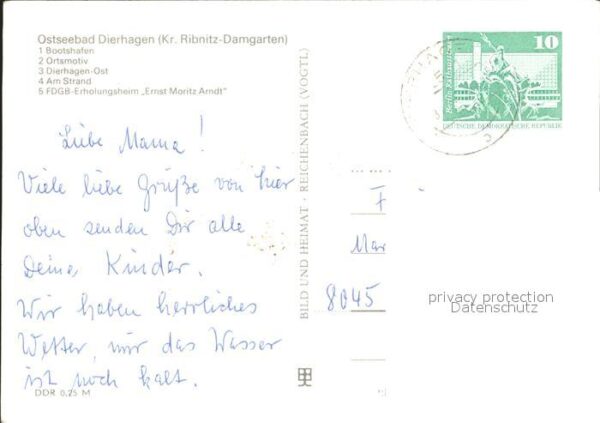 Ostseebad Dierhagen (Kr. Ribnitz-Damgarten)
1 Bootshafen
2 Ortsmotiv
3 Dierhagen-Ost
4 Am Strand
5 FDGB-Erholungsheim „Ernst Moritz Arndt"
Liebe Mama!
Viele liebe Grüße von hier
oben senden Dir alle
Deine Kinder.
Wir haben herrliches
Wetter, nur das Wasser
ist noch kalt.
DDR 0,25 M
BILD UND HEIMAT · REICHENBACH (VOGTL)
10
Berlin, Neptunbrunnen
DEUTSCHE DEMOKRATISCHE REPUBLIK
F
Mar
8045
privacy protection
Datenschutz